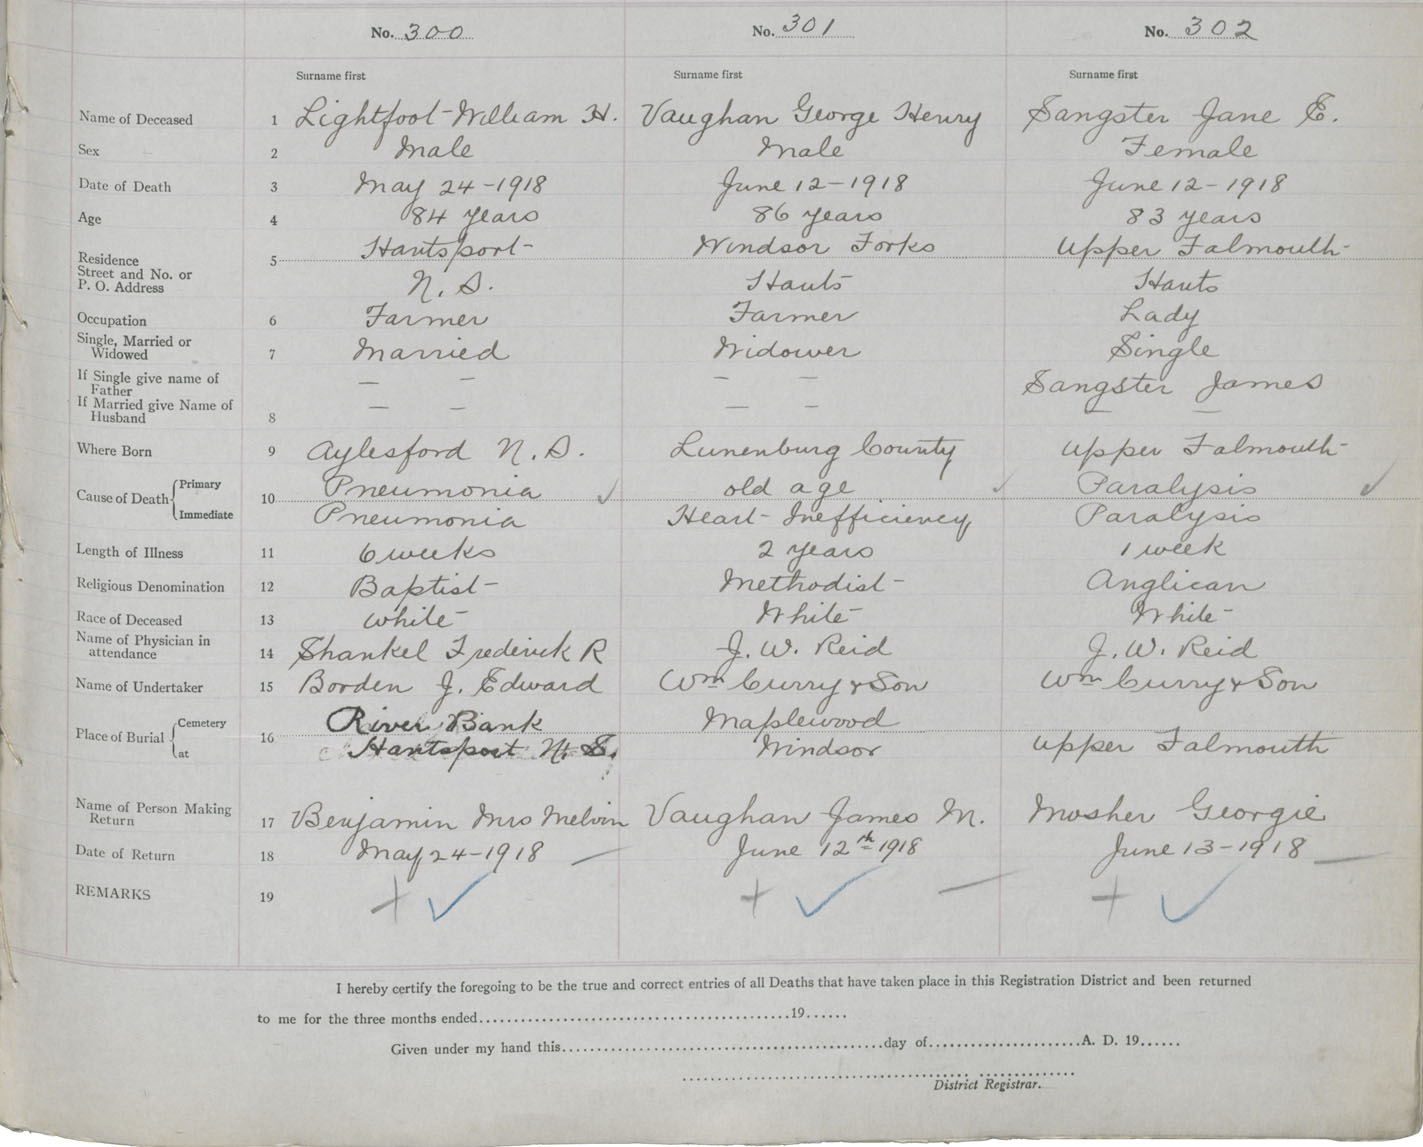 No. 300 No. 301 No. 302
Surname first Surname first Surname first
Name of Deceased 1 Lightfoot William H. Vaughan George Henry Sangster Jane E.
Sex 2 Male Male Female
Date of Death 3 May 24-1918 June 12-1918 June 12-1918
Age 4 84 years 86 years 83 years
Residence 5 Hantsport Windsor Forks Upper Falmouth
Street and No. or
P. O. Address N. S. Hants Hants
Occupation 6 Farmer Farmer Lady
Single, Married or
Widowed 7 Married Widower Single
If Single give name of
Father — — — — Sangster James
If Married give Name of
Husband 8 — — — — — —
Where Born 9 Aylesford N. S. Lunenburg County Upper Falmouth
Cause of Death Primary 10 Pneumonia ✓ old age ✓ Paralysis ✓
Immediate Pneumonia Heart Inefficiency Paralysis
Length of Illness 11 6 weeks 2 years 1 week
Religious Denomination 12 Baptist Methodist Anglican
Race of Deceased 13 White White White
Name of Physician in
attendance 14 Shankel Frederick R J. W. Reid J. W. Reid
Name of Undertaker 15 Borden J. Edward Wm Curry & Son Wm Curry & Son
Place of Burial Cemetery 16 River Bank Maplewood
at Hantsport N. S. Windsor Upper Falmouth
Name of Person Making
Return 17 Benjamin Mrs Melvin Vaughan James M. Mosher Georgie
Date of Return 18 May 24-1918 — June 12th 1918 June 13-1918 —
REMARKS 19 + ✓ + ✓ — + ✓
I hereby certify the foregoing to be the true and correct entries of all Deaths that have taken place in this Registration District and been returned
to me for the three months ended..............................................19......
Given under my hand this...............................................day of......................A. D. 19......
District Registrar.